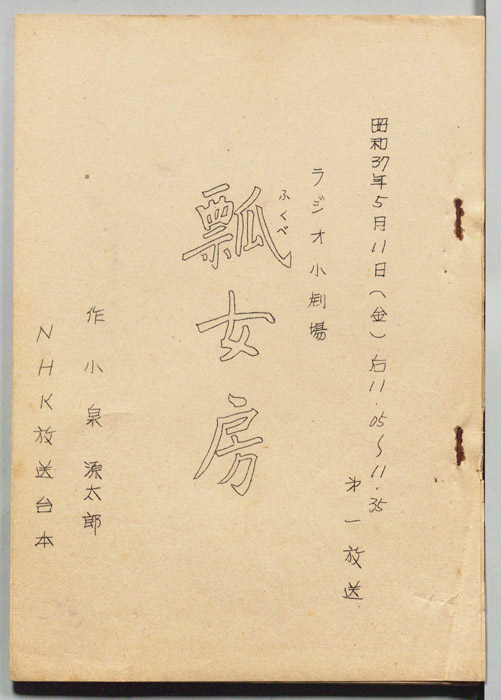 昭和37年5月11日(金)后11.05〜11.35
第一放送
ラジオ小劇場
ふくべ
瓢女房
作 小泉源太郎
NHK放送台本